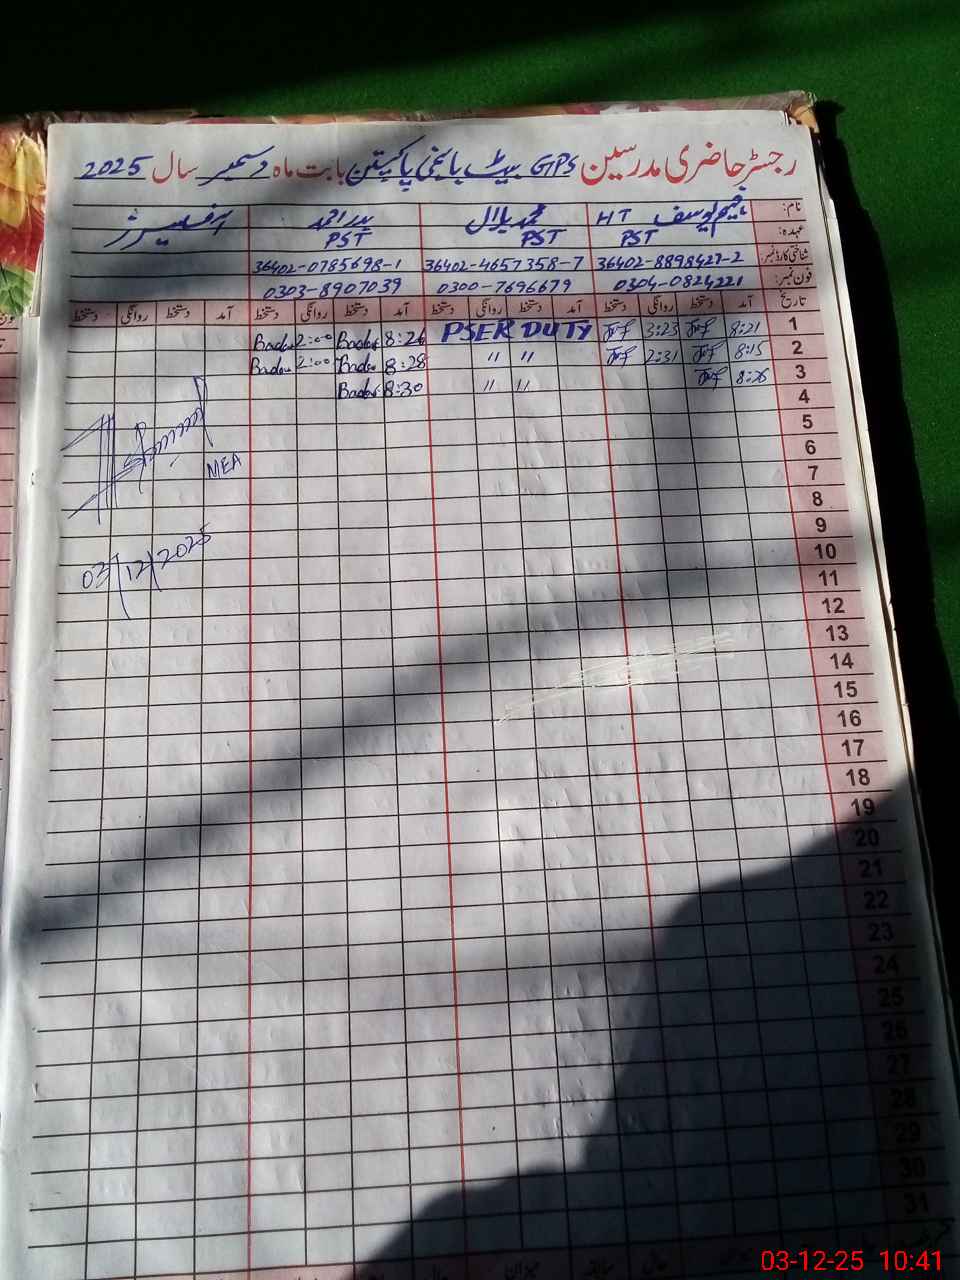 رجسٹر حاضری مدرسین GPS بیٹ بابت ماہ دسمبر سال 2025
نام: یوسف HT محمد بلال بدر احمد
عہدہ: PST PST PST
شناختی کارڈ نمبر: 36402-8898427-2 36402-4657358-7 36402-0785698-1
فون نمبر: 0304-0824221 0300-7696679 0303-8907039
تاریخ آمد دستخط روانگی دستخط آمد دستخط روانگی دستخط آمد دستخط روانگی دستخط آمد دستخط روانگی دستخط
1 8:21 3:23 PSER DUTY 8:26 Badar 2:00 Badar
2 8:15 2:31 " " 8:28 Badar 2:00 Badar
3 8:26 " " 8:30 Badar
4
5
6
MEA
7
8
9
03/12/2025
10
11
12
13
14
15
16
17
18
19
20
21
22
23
24
25
26
27
28
29
30
31
03-12-25 10:41